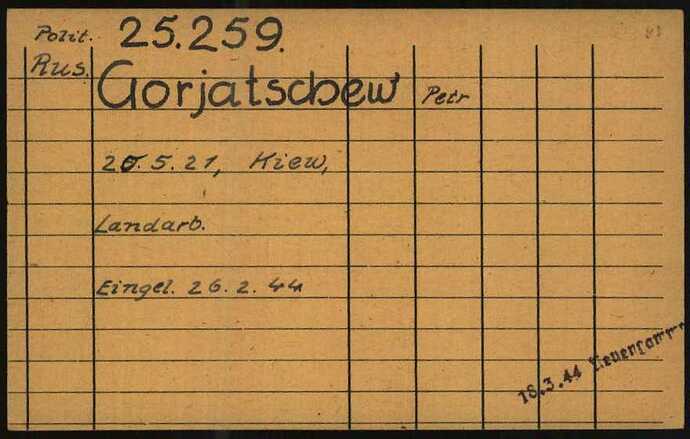 Polit. 25.259.
Rus. Gorjatschew Petr
20.5.21, Kiew,
Landarb.
Eingel. 26.2.44
18.3.44